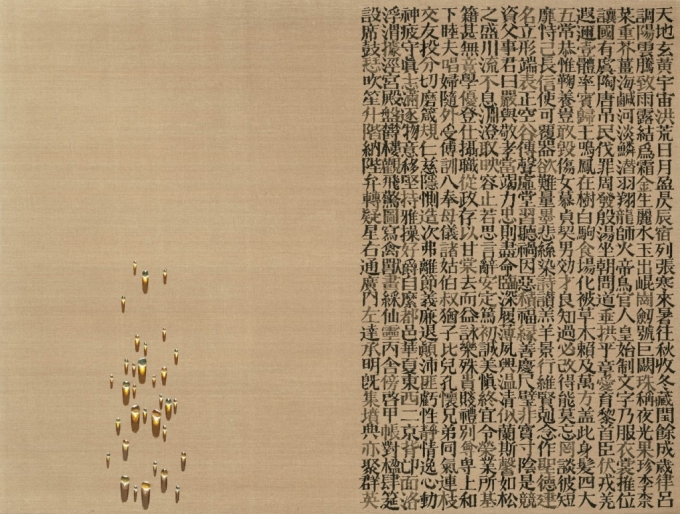 天地玄黃宇宙洪荒日月盈昃辰宿列張寒來暑往秋收冬藏閏餘成歲律呂
調陽雲騰致雨露結爲霜金生麗水玉出崐崗劒號巨闕珠稱夜光果珍李柰
菜重芥薑海鹹河淡鱗潛羽翔龍師火帝鳥官人皇始制文字乃服衣裳推位
讓國有虞陶唐吊民伐罪周發殷湯坐朝問道垂拱平章愛育黎首臣伏戎羌
遐邇壹體率賓歸王鳴鳳在樹白駒食場化被草木賴及萬方蓋此身髮四大
五常恭惟鞠養豈敢毀傷女慕貞絜男効才良知過必改得能莫忘罔談彼短
靡恃己長信使可覆器欲難量墨悲絲染詩讚羔羊景行維賢剋念作聖德建
名立形端表正空谷傳聲虛堂習聽禍因惡積福緣善慶尺璧非寶寸陰是競
資父事君曰嚴與敬孝當竭力忠則盡命臨深履薄夙興溫凊似蘭斯馨如松
之盛川流不息淵澄取映容止若思言辭安定篤初誠美愼終宜令榮業所基
籍甚無竟學優登仕攝職從政存以甘棠去而益詠樂殊貴賤禮別尊卑上和
下睦夫唱婦隨外受傅訓入奉母儀諸姑伯叔猶子比兒孔懷兄弟同氣連枝
交友投分切磨箴規仁慈隱惻造次弗離節義廉退顚沛匪虧性靜情逸心動
神疲守眞志滿逐物意移堅持雅操好爵自縻都邑華夏東西二京背邙面洛
浮渭據涇宮殿盤鬱樓觀飛驚圖寫禽獸畫綵仙靈丙舍傍啓甲帳對楹肆筵
設席鼓瑟吹笙升階納陛弁轉疑星右通廣內左達承明旣集墳典亦聚群英